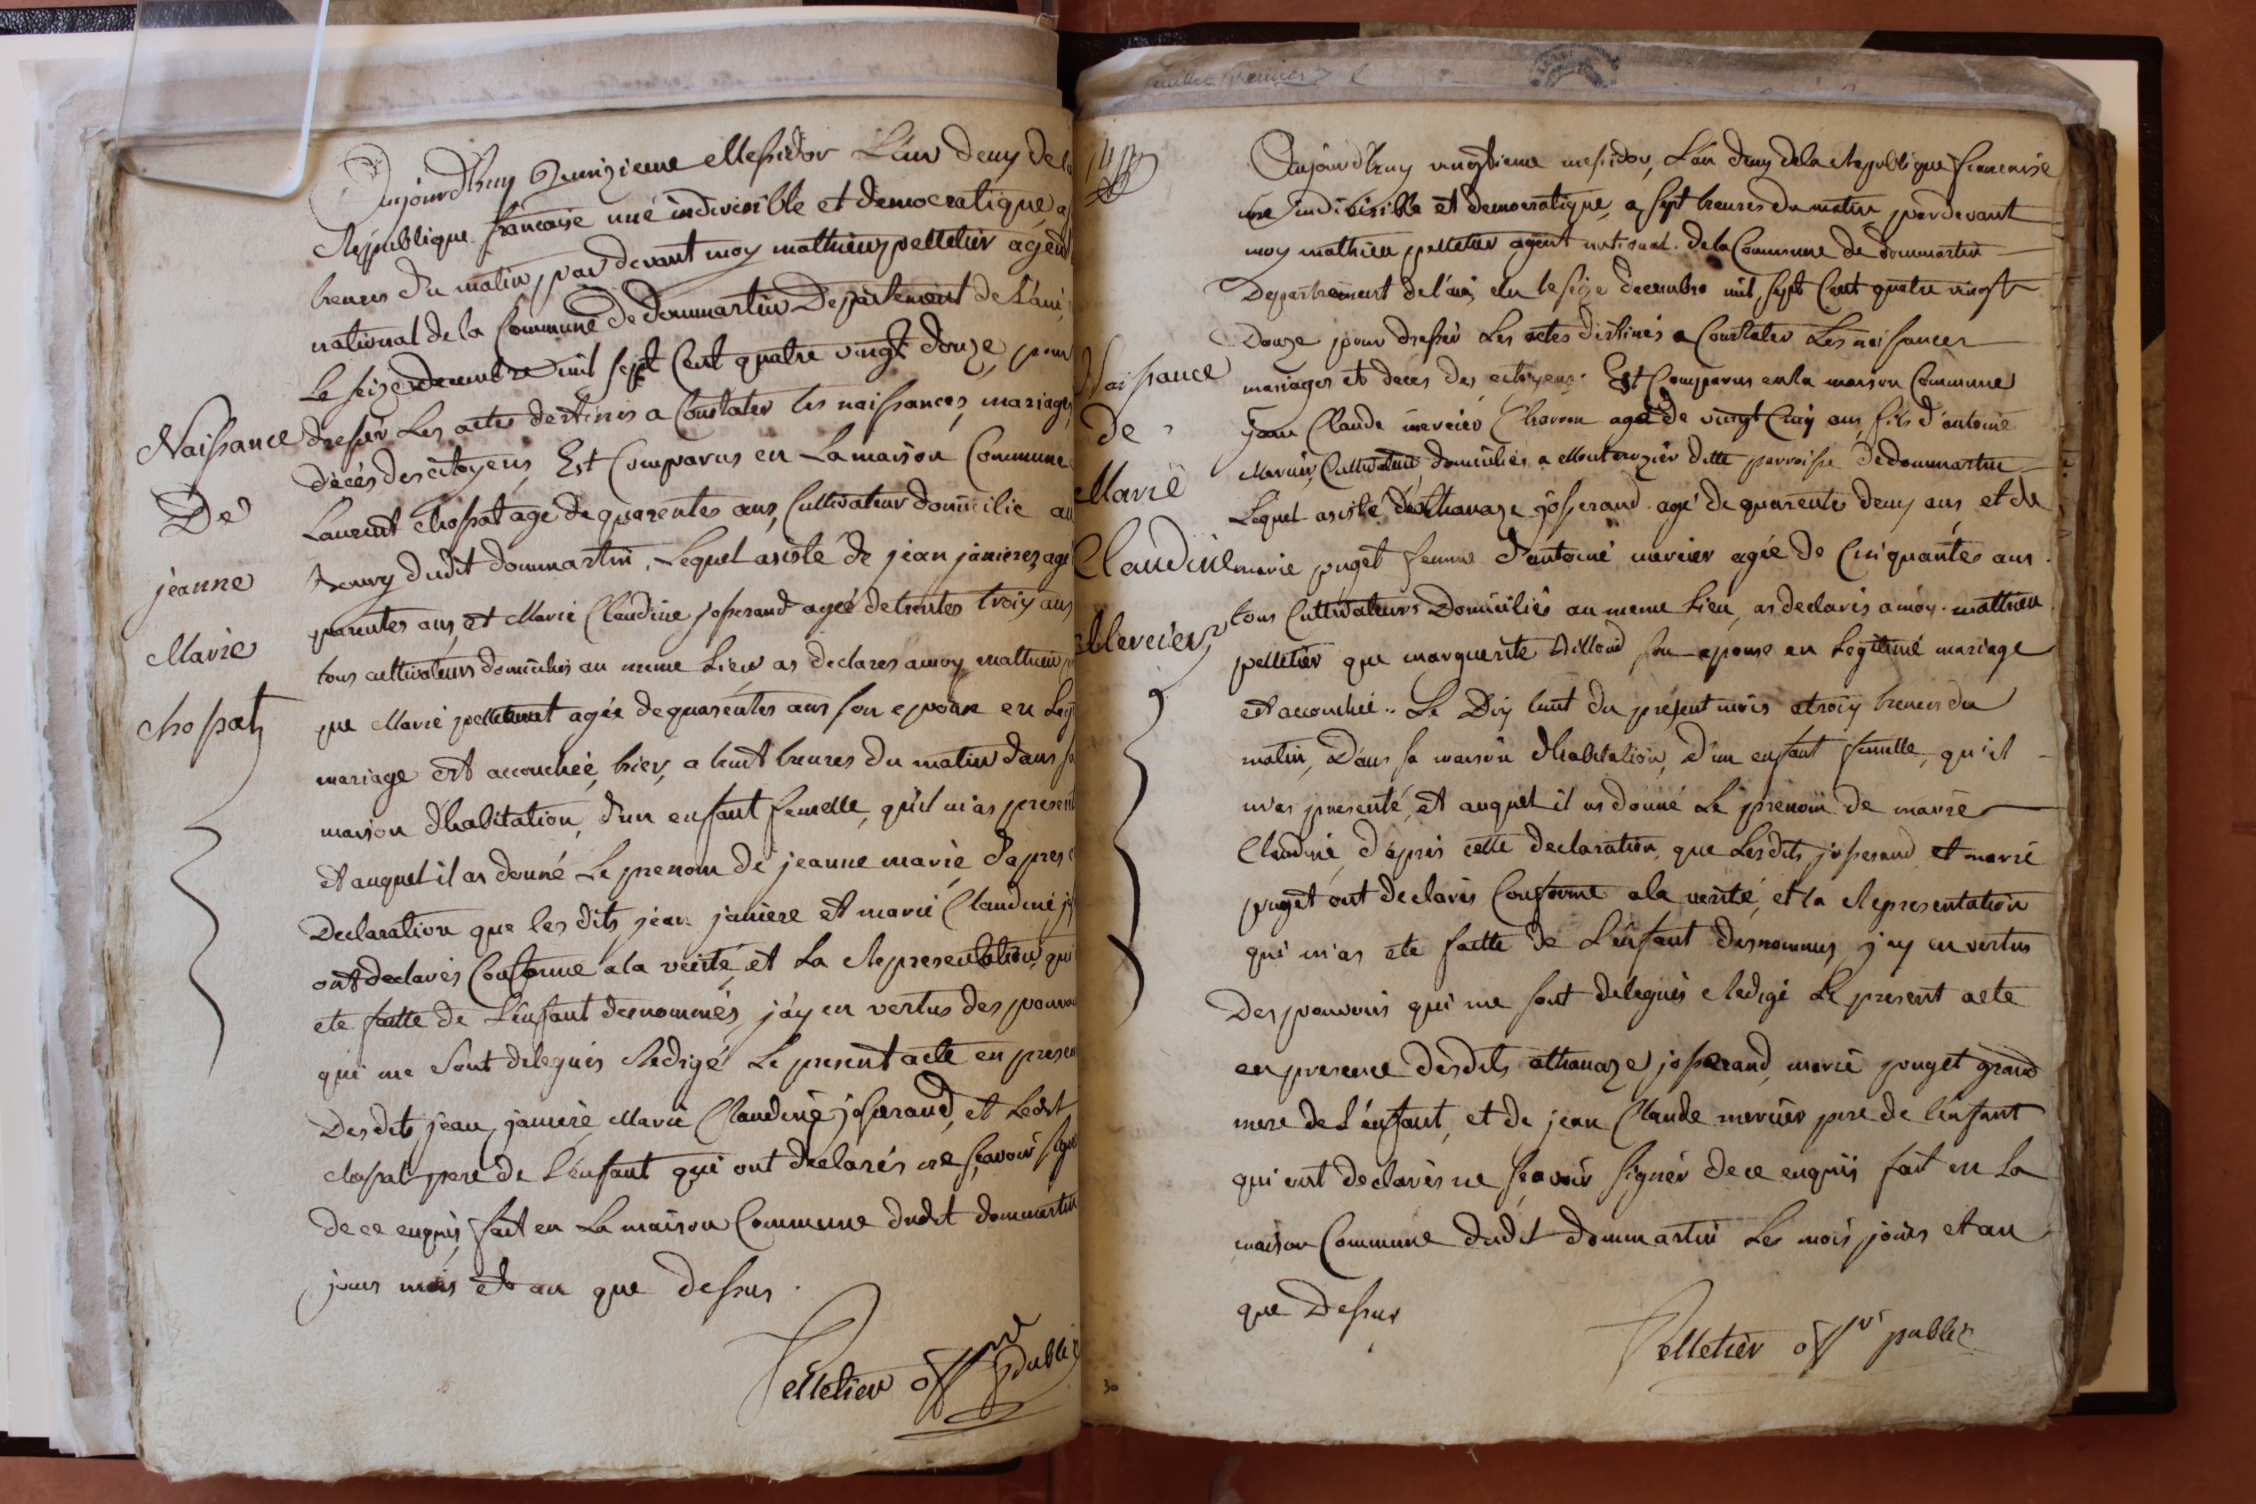 Aujourdhuy Quinzieme Messidor L'an deuy de la
Republique francaise une indivisible et democratique a
heures du matin, par devant moy mathieu pelletier agent
national de la Commune de dommartin Departement de L'ain,
Le seize decembre mil sept Cent quatre vingt douze, pour
Naissance
dresser Les actes destinés a Constater les naissances, mariages,
décés des citoyens, Est Comparus en La maison Commune
De
Laurent Chossat agé de quarentes ans, Cultivateur domicilié au
dudit dommartin, Lequel asisté de jean janieres agé
jeanne
quarentes ans, et Marie Claudine josserand ageé de trentes troiy ans
Marie
tous cultivateurs domiciliés au meme Lieu as declares a moy mathieu
Chossat
que Marie agée de quarentes ans son epouse en Leg
mariage est accouchée, hier, a huit heures du matin dans sa
maison d'habitation, d'un enfant femelle, qu'il m'as present
et auquel il as donné Le prenom de jeanne marie, D'apres c
Declaration que les dits jean janiere et marie Claudine jo
ont declarés Conforme a la verité, et La Representation, qui
ete faitte de L'enfant desnommés, j'ay en vertus des pouvoi
qui me sont delegués Redigé Le present acte en presen
Desdits jean janiere, Marie Claudine josserand, et Ledit
chossat pere de L'enfant qui ont declarés ne sçavoir signé
de ce enquis fait en La maison Commune dudit dommartin
jours mois et an que dessus.
Pelletier offr public
Aujourdhuy vingtieme messidor, L'an deuy de la Republique francaise
une indivisible et democratique, a sept heures du matin pardevant
moy mathieu pelletier agent national. de la Commune de dommartin
Departement de l'ain, elu le seize decembre mil sept Cent quatre vingt
Douze pour dresser Les actes destinés a Constater Les naissances
Naissance
mariages et decés des citoyens. Est Comparus en la maison Commune
de
jean Claude mercier Charron agé de vingt Cinq ans, fils d'antoine
Mercier, Cultivateur domiciliés a ditte parroisse de dommartin
Marie
Lequel asisté d'athanaze josserand agé de quarentes deuy ans et de
Claudine
marie puget femme d'antoine mercier agée de Cinquantes ans.
tous Cultivateurs Domiciliés au meme Lieu, as declarés a moy mathieu
Mercier
pelletier que marguerite son epouse en Legitime mariage
est accouchée.. Le Diy huit du present mois a troiy heures du
matin, Dans sa maison d'habitation, d'un enfant femelle, qu'il
m'as presenté, et auquel il as donné Le prenom de marie
Claudine d'apres cette declaration, que Lesdits josserand et marie
puget ont declarés Conforme a la verité, et la Representation
qui m'as ete faitte de L'enfant desnommés, j'ay en vertus
Des pouvoirs qui me sont delegués Redigé Le present acte
en presence desdits athanaze josserand, marie puget grand
mere de L'enfant, et de jean Claude mercier pere de l'enfant
qui ont declarés ne sçavoir signer de ce enquis fait en La
maison Commune dudit dommartin Les mois jours et an
que Dessus
Pelletier offr public
30